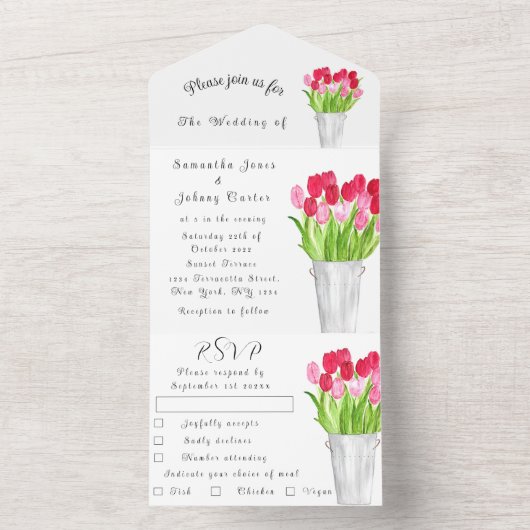 Please join us for
The Wedding of
Samantha Jones
&
Johnny Carter
at s in the evening
Saturday 22th of
October 2022
Sunset Terrace
1234 Terracotta Street,
New York, NY 1234
Reception to follow
RSVP
Please respond by
September 1st 20xx
Joyfully accepts
Sadly declines
Number attending
Indicate your choice of meal
Fish Chicken Vegan